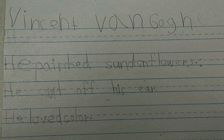 Vincent van Gogh
He painted sundonflowers.
He cut off his ear
He loved colors